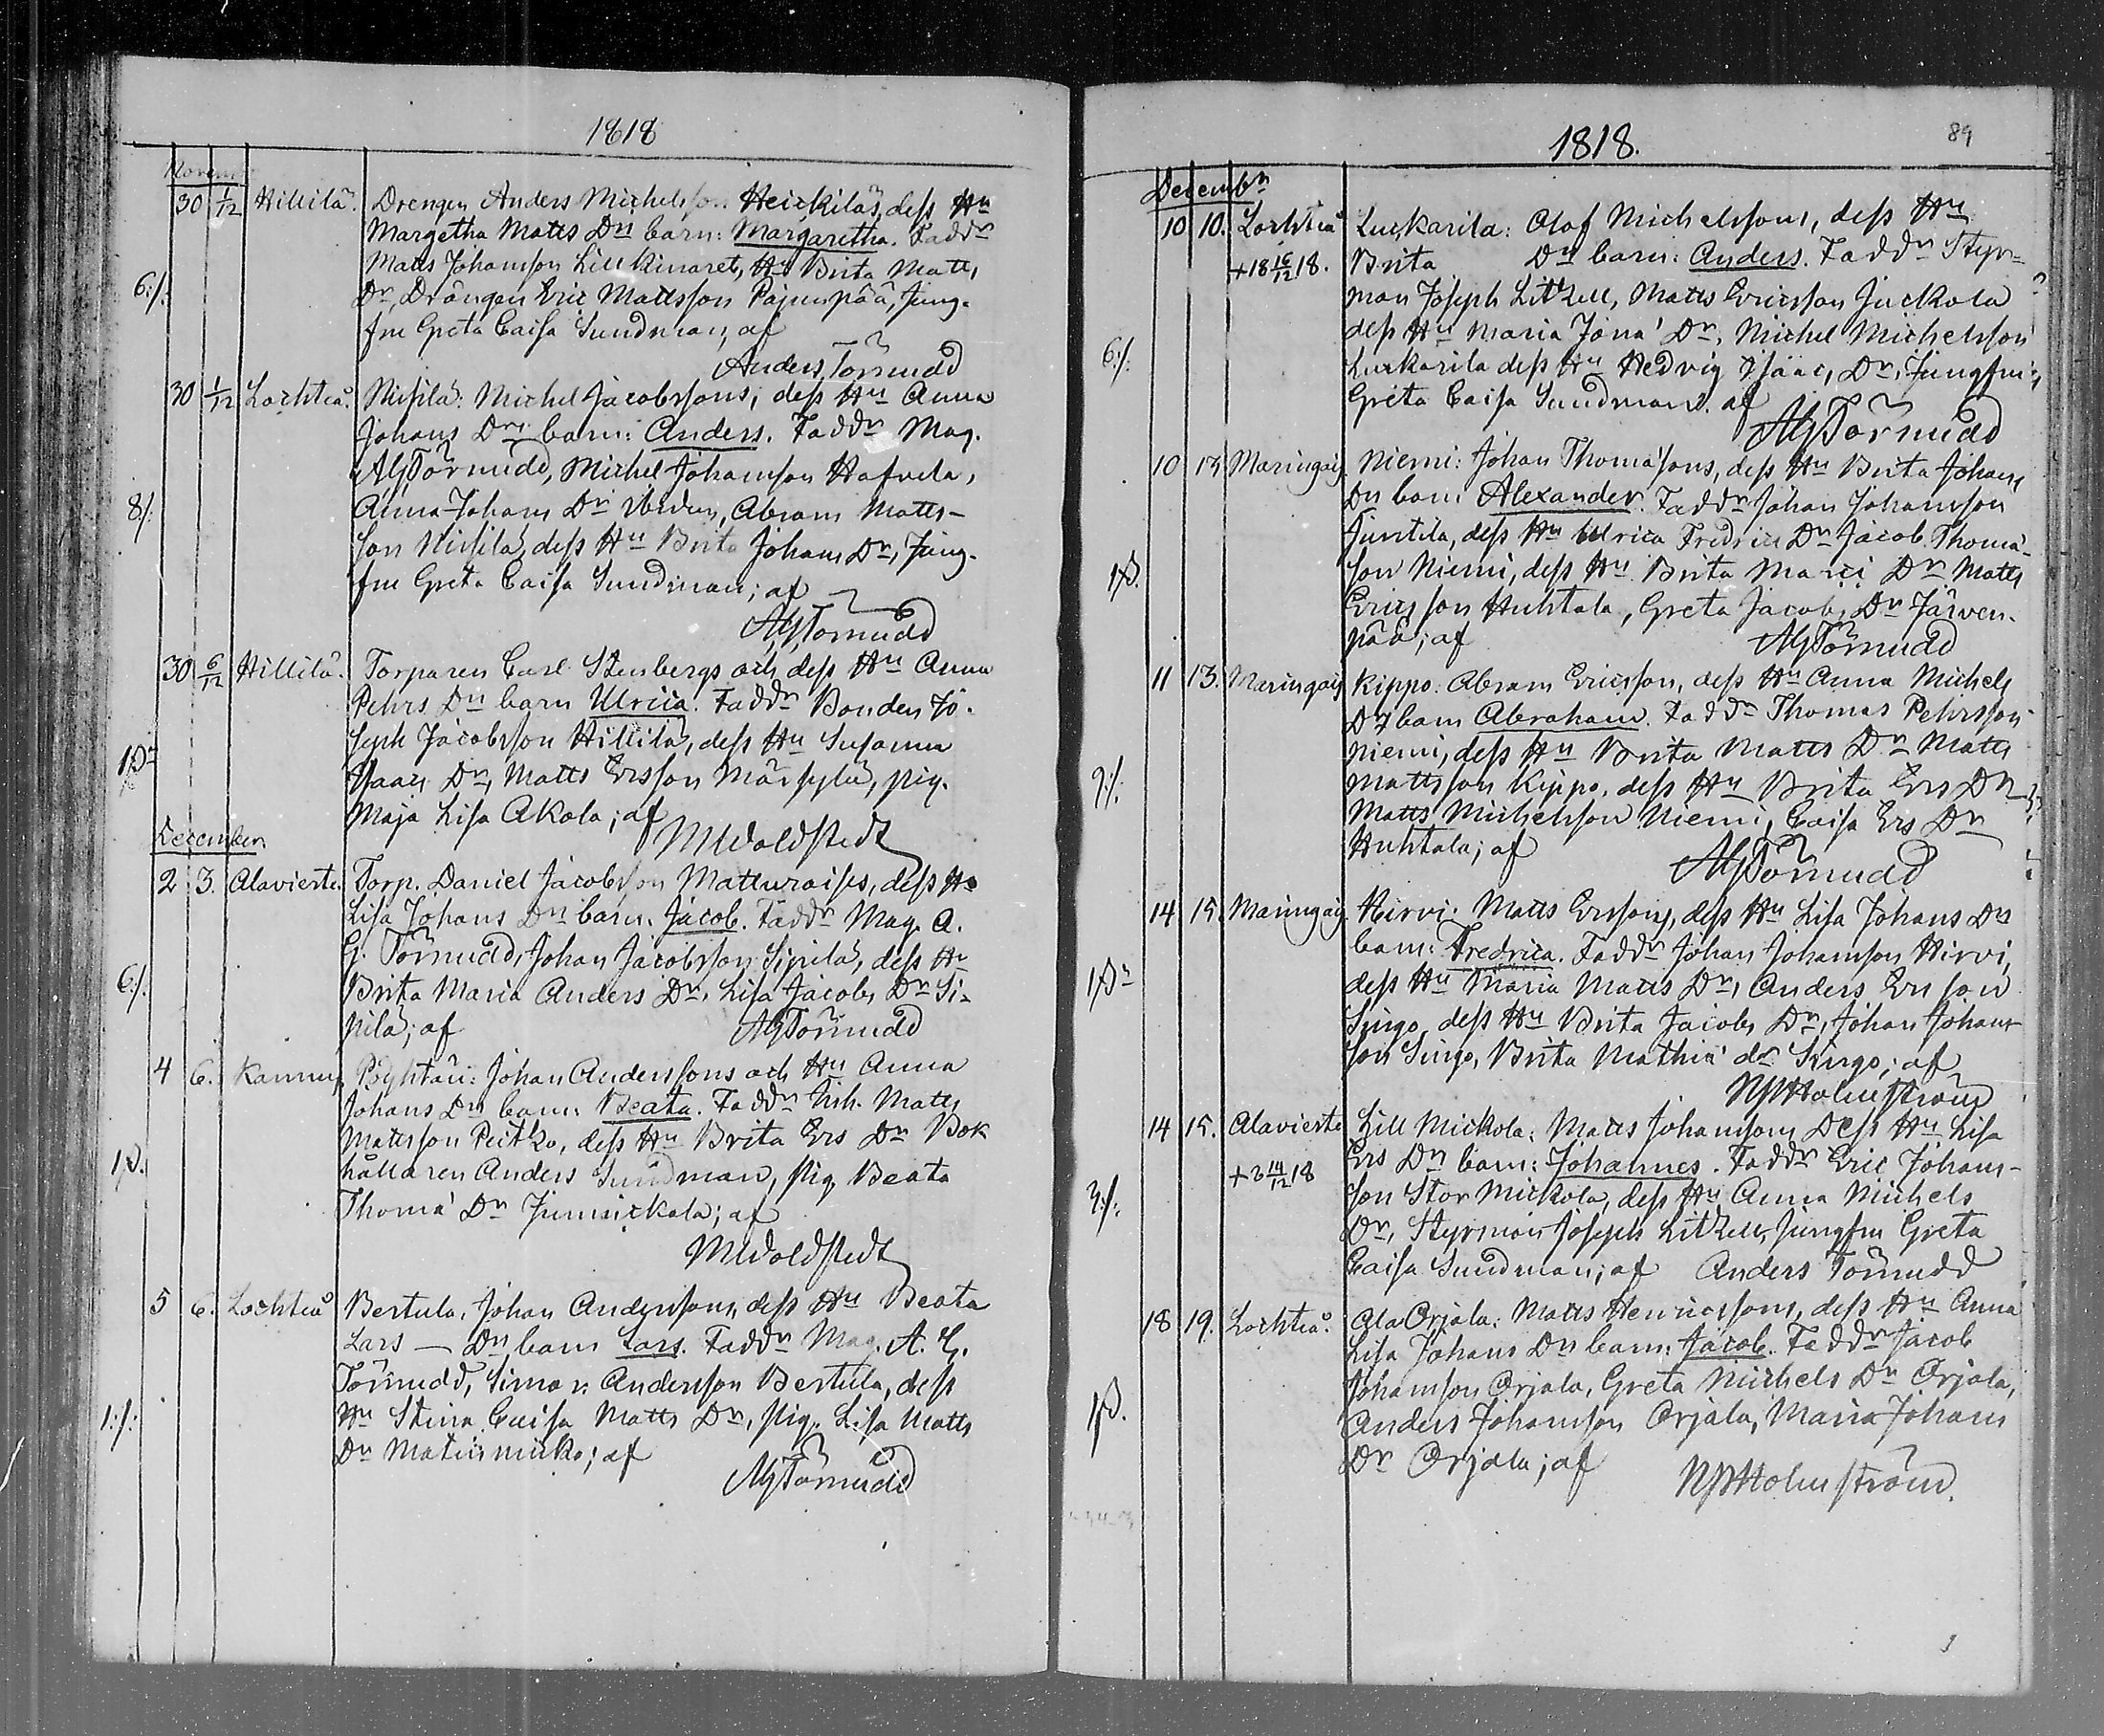 1818
Novem
30 1/12 Hillilä. Drengen Anders Michelsson Heickiläs, dess Hu
Margetha Matts Drs barn: Margaretha. Faddr
Matts Johansson Lill Kinaret, Hu Brita Matts
6:/. Dr, Drängen Eric Mattsson Pajunpää, Jung-
fru Greta Caisa Sundman, af
Anders Törnudd
30 1/12 Lochteå. Nisila: Michel Jacobssons, dess Hu Anna
Johans Drs barn: Anders. Faddr Mag.
AGTörnudd, Michel Johansson Hafvela,
8/: Anna Johans Dr ibidem, Abram Matts-
son Nisilä, dess Hu Brita Johans Dr, Jung-
fru Greta Caisa Sundman; af
AGTörnudd
30 6/12 Hillilä. Torparen Carl Stenbergs och dess Hu Anna
Pehrs Drs barn Ulrica. Faddr Bonden Jo-
seph Jacobsson Hillilä, dess Hu Susanna
Isaacs Dr, Matts Ersson Märsylä, pig.
Maja Lisa Akola; af
MWoldstedt
December.
2 3. Alavierte. Torp. Daniel Jacobsson Matturaises, dess Hu
Lisa Johans Drs barn. Jacob. Faddr Mag. A.
G. Törnudd, Johan Jacobsson Sipilä, dess Hu
6/. Brita Maria Anders Dr, Lisa Jacobs Dr Si-
pilä; af AGTörnudd
4 6. Kannus Pöyhtäri: Johan Anderssons och Hu Anna
Johans Drs barn: Beata. Faddr Matts
Mattsson Peitzo, dess Hu Brita Ers Dr Bok
hållaren Anders Sundman, pig Beata
Thomæ Dr Junnickala; af
MWoldstedt
5 6. Lochteå Bertula, Johan Anderssons, dess Hu Beata
Lars — Drs barn Lars. Faddr Mag. A. G.
Törnudd, Simon Andersson Bertula, dess
1:/: Hu Stina Caisa Matts Dr, pig. Lisa Matts
Dr; af
AGTörnudd
1818. 89
Decembr
10 10. Lochteå Luckarila: Olof Michelssons, dess Hu
+18 16/12 18. Brita Drs barn: Anders. Faddr Styr=
man Joseph Litzell, Matts Ericsson Juckola
dess Hu Maria Jonæ Dr, Michel Michelsson
6:/: Luckarila dess Hu Hedvig Isaac, Dr, Jungfru
Greta Caisa Sundman. af
AGTörnudd
10 13 Maringais Niemi: Johan Thomæsons, dess Hu Brita Johans
Drs barn Alexander. Faddr Johan Johansson
Juntila, dess Hu Ulrica Fredrics Dr Jacob Thomæ-
son Niemi, dess Hu Brita Marci Dr Matts
Ericsson Huhtala, Greta Jacobs Dr Järven-
pää; af AGTörnudd
11 13. Maringais Kippo: Abram Ericsson, dess Hu Anna Michels
Drs barn Abraham. Faddr Thomas Pehrsson
Niemi, dess Hu Brita Matts Dr Matts
9:/: Mattsson Kippo, dess Hu Brita Ers Dr
Matts Michelsson Niemi, Caisa Ers Dr
Huhtala; af
AGTörnudd
14 15. Maringais Hirvi: Matts Erssons, dess Hu Lisa Johans Drs
barn: Fredrica. Faddr Johan Johansson Hirvi,
dess Hu Maria Matts Dr, Anders Ersson
Singo, dess Hu Brita Jacobs Dr, Johan Johans
son Singo, Brita Mathiæ dr Singo; af
Holmström
14 15. Alavierte Lill Mickola: Matts Johanssons Dess Hu Lisa
+2 14/12 18 Ers Drs barn: Johannes. Faddr Eric Johans-
3:/: son Stor Mickola, dess Hu Anna Michels
Dr, Styrman Joseph Litzell, Jungfru Greta
Caisa Sundman; af Anders Törnudd
18 19. Lochteå. Ala Orjala: Matts Henricssons, dess Hu Anna
Lisa Johans Drs barn: Jacob. Faddr Jacob
Johansson Orjala, Greta Michels Dr Orjala,
Anders Johansson Orjala, Maria Johans
Dr Orjala; af Holmström.